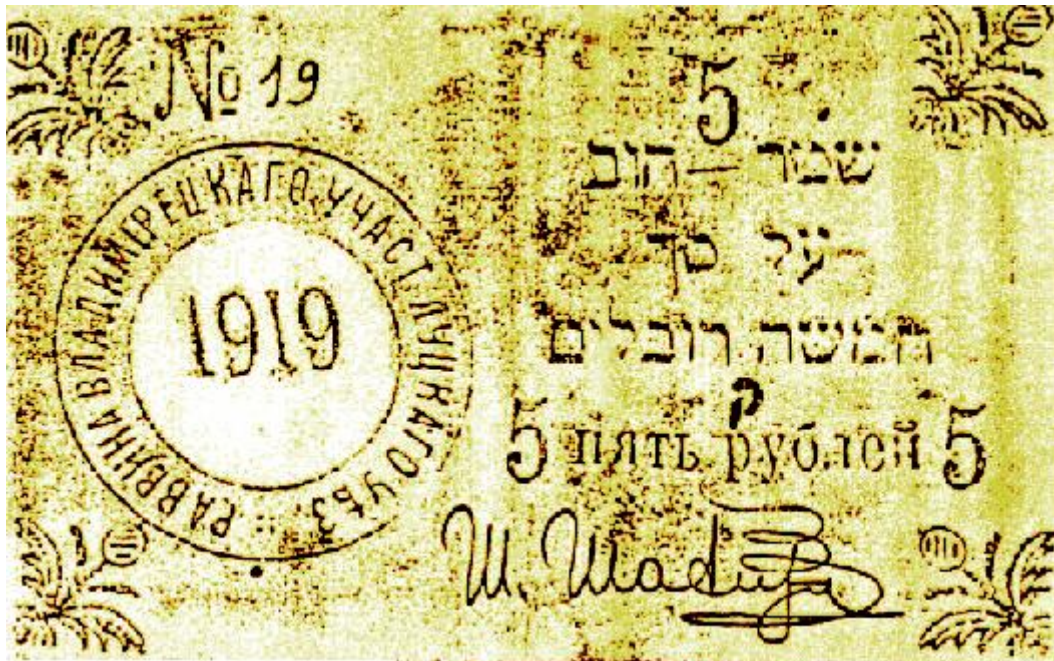 № 19
РАВВИНА ВЛАДИМІРЕЦКАГО УЧАСТ. ЛУЦКАГО УѢЗ.
1919
5
שטר – חוב
על סך
חמשה רובלים
ק
5 пять рублей 5
Ш.